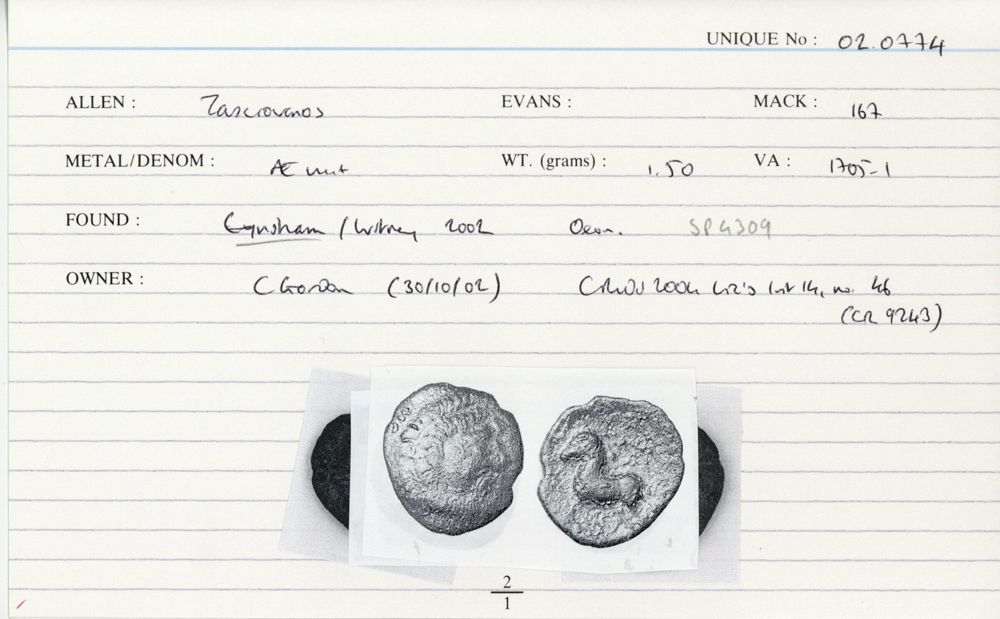 UNIQUE No : 02.0774
ALLEN : Tasciovanos EVANS : MACK : 167
METAL/DENOM : Æ unit WT. (grams) : 1.50 VA : 1705-1
FOUND : Eynsham / Witney 2002 Oxon. SP4309
OWNER : C Gordon (30/10/02) 2004 no. 46
(CR 9243)
2
1